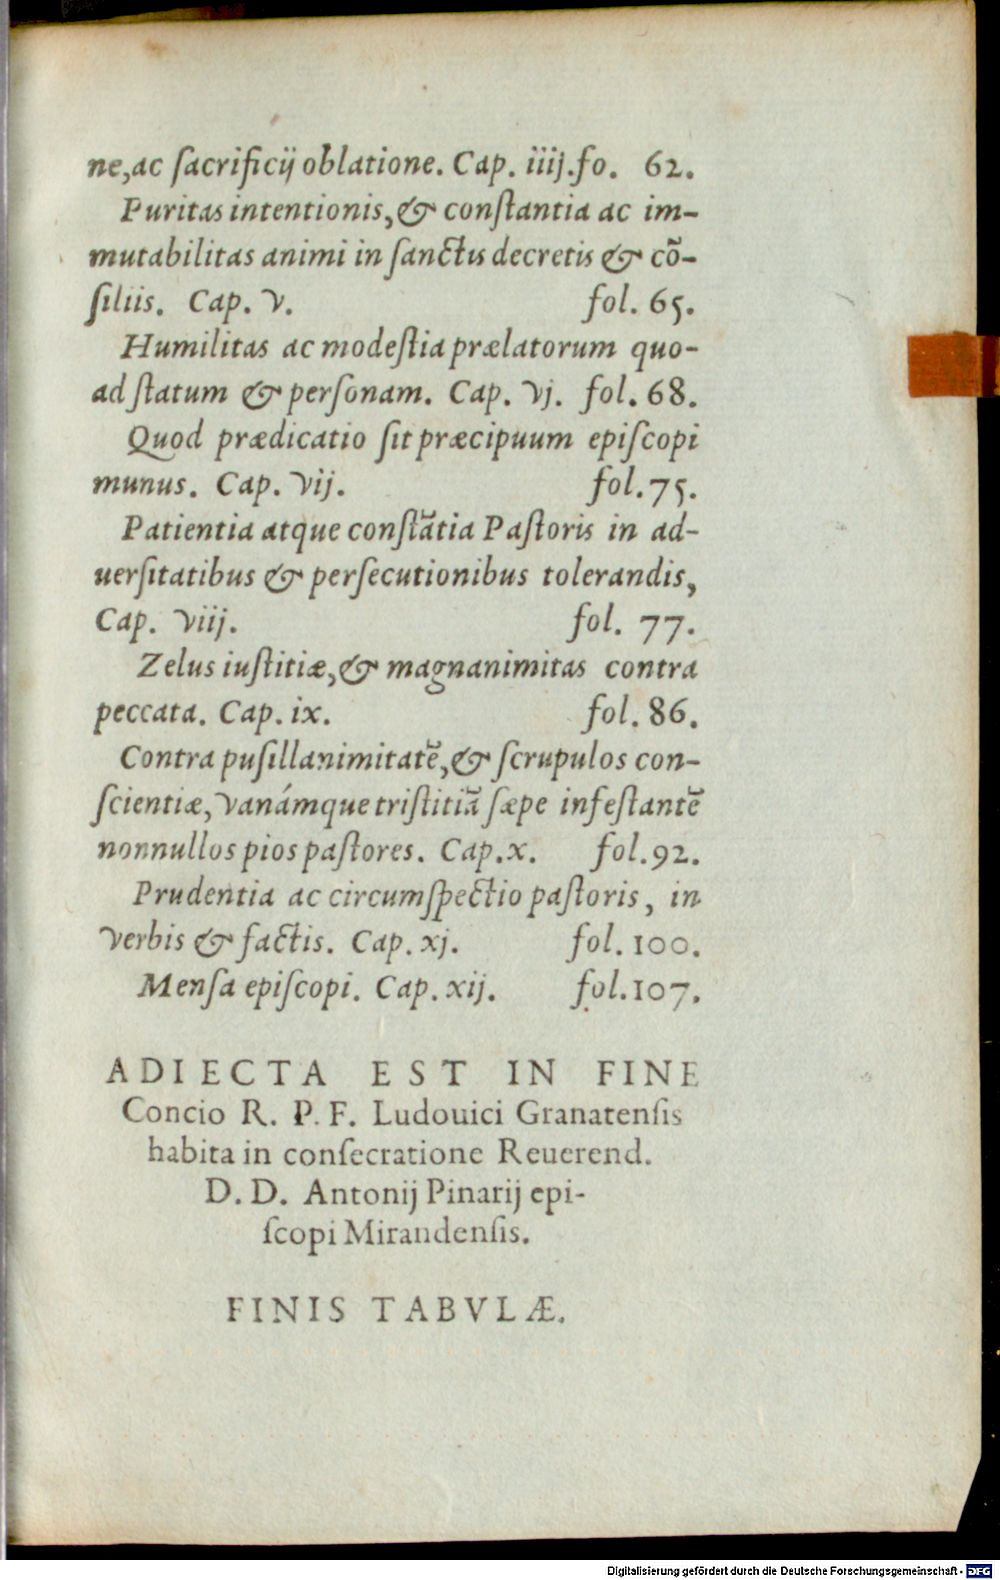 ne, ac ſacrificij oblatione. Cap. iiij. fo. 62.
Puritas intentionis, & conſtantia ac im-
mutabilitas animi in ſanctis decretis & cō-
ſiliis. Cap. v. fol. 65.
Humilitas ac modeſtia prælatorum quo-
ad ſtatum & perſonam. Cap. vj. fol. 68.
Quod prædicatio ſit præcipuum epiſcopi
munus. Cap. vij. fol. 75.
Patientia atque conſtātia Paſtoris in ad-
uerſitatibus & perſecutionibus tolerandis,
Cap. viij. fol. 77.
Zelus iuſtitiæ, & magnanimitas contra
peccata. Cap. ix. fol. 86.
Contra puſillanimitatē, & ſcrupulos con-
ſcientiæ, vanámque triſtitiā ſæpe infeſtantē
nonnullos pios paſtores. Cap. x. fol. 92.
Prudentia ac circumſpectio paſtoris, in
verbis & factis. Cap. xj. fol. 100.
Menſa epiſcopi. Cap. xij. fol. 107.
ADIECTA EST IN FINE
Concio R. P. F. Ludouici Granatenſis
habita in conſecratione Reuerend.
D. D. Antonij Pinarij epi-
ſcopi Mirandenſis.
FINIS TABVLÆ.
Digitalisierung gefördert durch die Deutsche Forschungsgemeinschaft - DFG